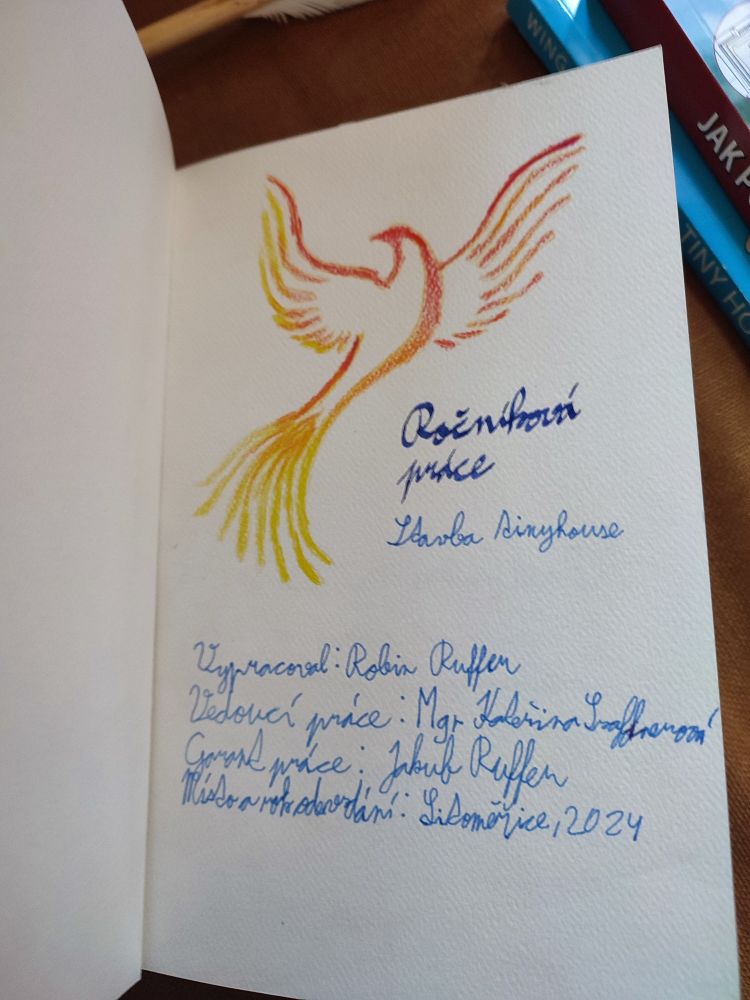 WING
JAK P
TINY HO
Ročníková
práce
Stavba tinyhouse
Vypracoval: Robin Ruffer
Vedoucí práce: Mgr Kateřina
Garant práce: Jakub Ruffer
Místo a rok odevzdání: Litoměřice, 2024